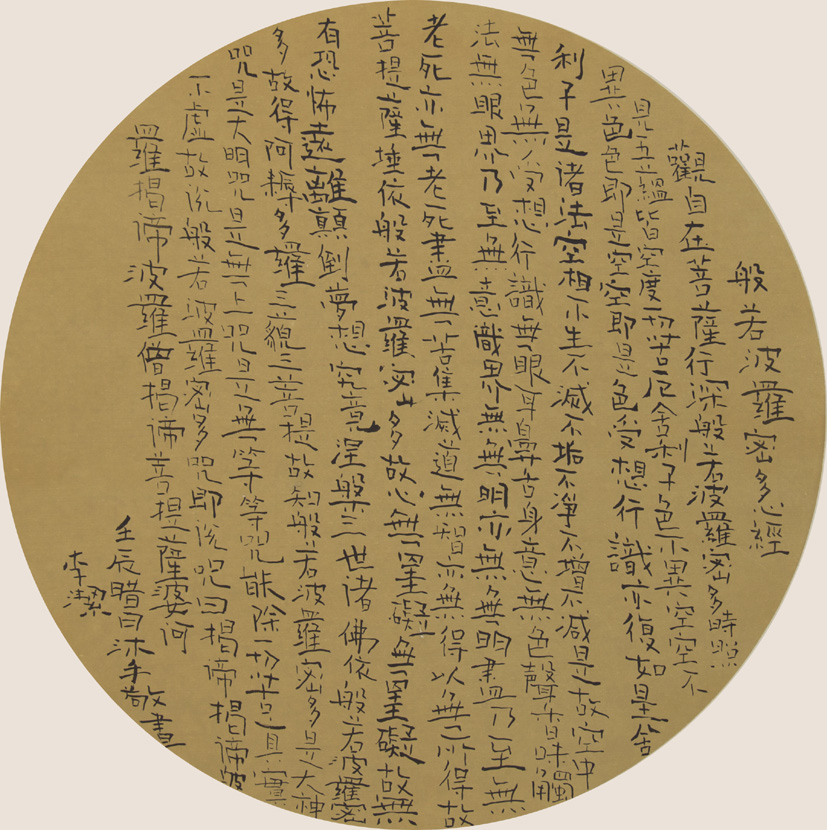 般若波羅密多心經
觀自在菩薩行深般若波羅密多時照
見五蘊皆空度一切苦厄舍利子色不異空空不
異色色即是空空即是色受想行識亦復如是舍
利子是諸法空相不生不滅不垢不淨不增不減是故空中
無色無受想行識無眼耳鼻舌身意無色聲香味觸
法無眼界乃至無意識界無無明亦無無明盡乃至無
老死亦無老死盡無苦集滅道無智亦無得以無所得故
菩提薩埵依般若波羅密多故心無罣礙無罣礙故無
有恐怖遠離顛倒夢想究竟涅槃三世諸佛依般若波羅密
多故得阿耨多羅三藐三菩提故知般若波羅密多是大神
咒是大明咒是無上咒是無等等咒能除一切苦是真實
不虛故說般若波羅密多咒即說咒曰揭諦揭諦波
羅揭諦波羅僧揭諦菩提薩婆訶
壬辰腊日沐手敬書
李潔